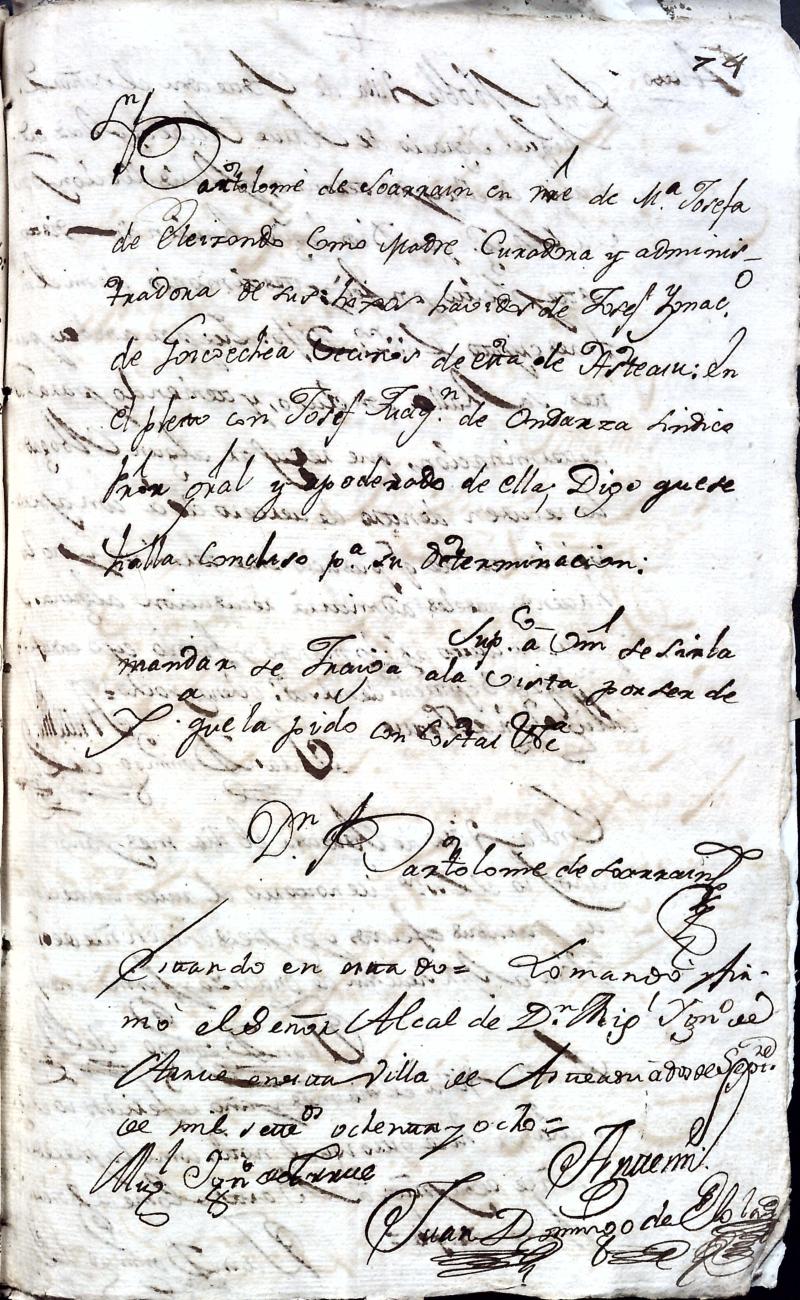 74
Sr
Bartolome de Loarrain en nre de Ma Josefa
de Eleizondo Como Madre Curadora y adminis-
tradora de sus hijos havidos de Josef Ygnaco
de Goicoechea Vecinos de esta de Asteasu: en
el pleito con Josef Juaqn de Ondarza Sindico
Pror gral y apoderado de ella, Digo que se
halla Concluso pa su determinacion:
Supco a Vm se sirba
mandar se Traiga a la Vista por ser de
Ja que la pido con Costas &ca
Dn
Bartolome de Loarrain
Estando en estado = Lo mando y fir-
mó el Señor Alcalde Dn Migl Ygno de
Arrue en esta Villa de Asteasu a dos de Sepre
de mil setteos ochenta y ocho =
Migl Igno de Arrue
Antemi
Juan Domingo de Elola